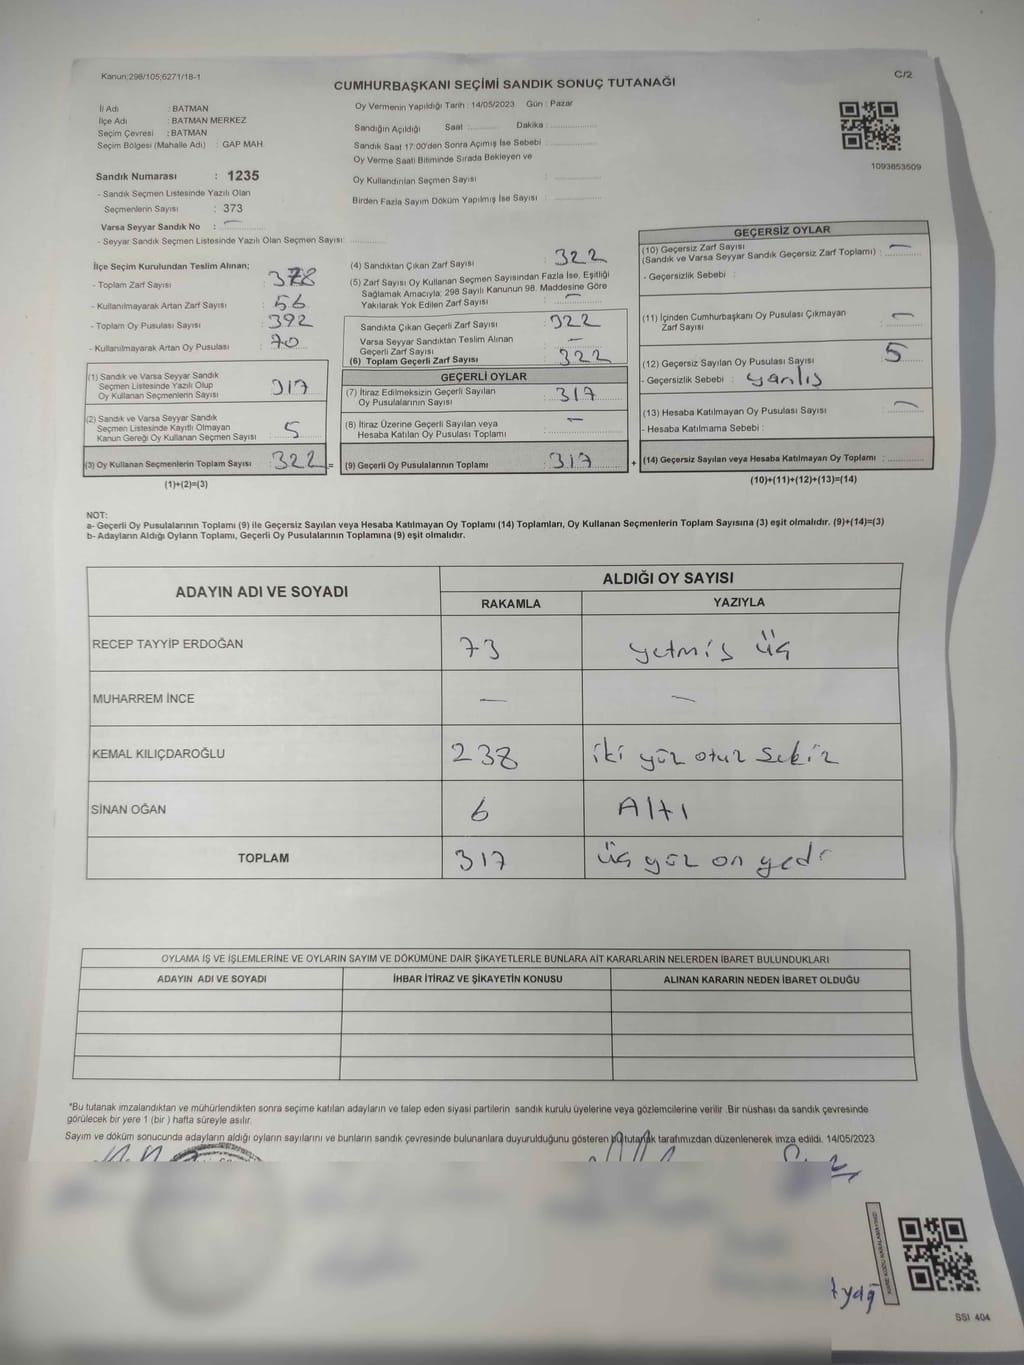 Kanun;298/105;6271/18-1
C/2
CUMHURBAŞKANI SEÇİMİ SANDIK SONUÇ TUTANAĞI
İl Adı : BATMAN
İlçe Adı : BATMAN MERKEZ
Seçim Çevresi : BATMAN
Seçim Bölgesi (Mahalle Adı) : GAP MAH.
Oy Vermenin Yapıldığı Tarih : 14/05/2023 Gün : Pazar
Sandığın Açıldığı Saat : Dakika :
Sandık Saat 17:00'den Sonra Açımış İse Sebebi :
Oy Verme Saati Bitiminde Sırada Bekleyen ve
Oy Kullandırılan Seçmen Sayısı :
Birden Fazla Sayım Döküm Yapılmış İse Sayısı :
1093853509
Sandık Numarası : 1235
- Sandık Seçmen Listesinde Yazılı Olan
Seçmenlerin Sayısı : 373
Varsa Seyyar Sandık No : —
- Seyyar Sandık Seçmen Listesinde Yazılı Olan Seçmen Sayısı:
İlçe Seçim Kurulundan Teslim Alınan;
- Toplam Zarf Sayısı : 378
- Kullanılmayarak Artan Zarf Sayısı : 56
- Toplam Oy Pusulası Sayısı : 392
- Kullanılmayarak Artan Oy Pusulası : 70
(1) Sandık ve Varsa Seyyar Sandık
Seçmen Listesinde Yazılı Olup
Oy Kullanan Seçmenlerin Sayısı : 317
(2) Sandık ve Varsa Seyyar Sandık
Seçmen Listesinde Kayıtlı Olmayan
Kanun Gereği Oy Kullanan Seçmen Sayısı : 5
(3) Oy Kullanan Seçmenlerin Toplam Sayısı : 322 =
(1)+(2)=(3)
(4) Sandıktan Çıkan Zarf Sayısı : 322
(5) Zarf Sayısı Oy Kullanan Seçmen Sayısından Fazla İse, Eşitliği
Sağlamak Amacıyla; 298 Sayılı Kanunun 98. Maddesine Göre
Yakılarak Yok Edilen Zarf Sayısı : —
Sandıkta Çıkan Geçerli Zarf Sayısı : 322
Varsa Seyyar Sandıktan Teslim Alınan
Geçerli Zarf Sayısı : —
(6) Toplam Geçerli Zarf Sayısı : 322
GEÇERLİ OYLAR
(7) İtiraz Edilmeksizin Geçerli Sayılan
Oy Pusulalarının Sayısı : 317
(8) İtiraz Üzerine Geçerli Sayılan veya
Hesaba Katılan Oy Pusulası Toplamı : —
(9) Geçerli Oy Pusulalarının Toplamı : 317 +
GEÇERSİZ OYLAR
(10) Geçersiz Zarf Sayısı
(Sandık ve Varsa Seyyar Sandık Geçersiz Zarf Toplamı) : —
- Geçersizlik Sebebi :
(11) İçinden Cumhurbaşkanı Oy Pusulası Çıkmayan
Zarf Sayısı : —
(12) Geçersiz Sayılan Oy Pusulası Sayısı : 5
- Geçersizlik Sebebi : yanlış
(13) Hesaba Katılmayan Oy Pusulası Sayısı : —
- Hesaba Katılmama Sebebi :
(14) Geçersiz Sayılan veya Hesaba Katılmayan Oy Toplamı :
(10)+(11)+(12)+(13)=(14)
NOT:
a- Geçerli Oy Pusulalarının Toplamı (9) ile Geçersiz Sayılan veya Hesaba Katılmayan Oy Toplamı (14) Toplamları, Oy Kullanan Seçmenlerin Toplam Sayısına (3) eşit olmalıdır. (9)+(14)=(3)
b- Adayların Aldığı Oyların Toplamı, Geçerli Oy Pusulalarının Toplamına (9) eşit olmalıdır.
ADAYIN ADI VE SOYADI
ALDIĞI OY SAYISI
RAKAMLA YAZIYLA
RECEP TAYYİP ERDOĞAN 73 yetmiş üç
MUHARREM İNCE — —
KEMAL KILIÇDAROĞLU 238 iki yüz otuz sekiz
SİNAN OĞAN 6 Altı
TOPLAM 317 üç yüz on yedi
OYLAMA İŞ VE İŞLEMLERİNE VE OYLARIN SAYIM VE DÖKÜMÜNE DAİR ŞİKAYETLERLE BUNLARA AİT KARARLARIN NELERDEN İBARET BULUNDUKLARI
ADAYIN ADI VE SOYADI İHBAR İTİRAZ VE ŞİKAYETİN KONUSU ALINAN KARARIN NEDEN İBARET OLDUĞU
*Bu tutanak imzalandıktan ve mühürlendikten sonra seçime katılan adayların ve talep eden siyasi partilerin sandık kurulu üyelerine veya gözlemcilerine verilir .Bir nüshası da sandık çevresinde
görülecek bir yere 1 (bir ) hafta süreyle asılır.
Sayım ve döküm sonucunda adayların aldığı oyların sayılarını ve bunların sandık çevresinde bulunanlara duyurulduğunu gösteren bu tutanak tarafımızdan düzenlenerek imza edildi. 14/05/2023
KARE KODU KARALAMAYINIZ!
SSI 404